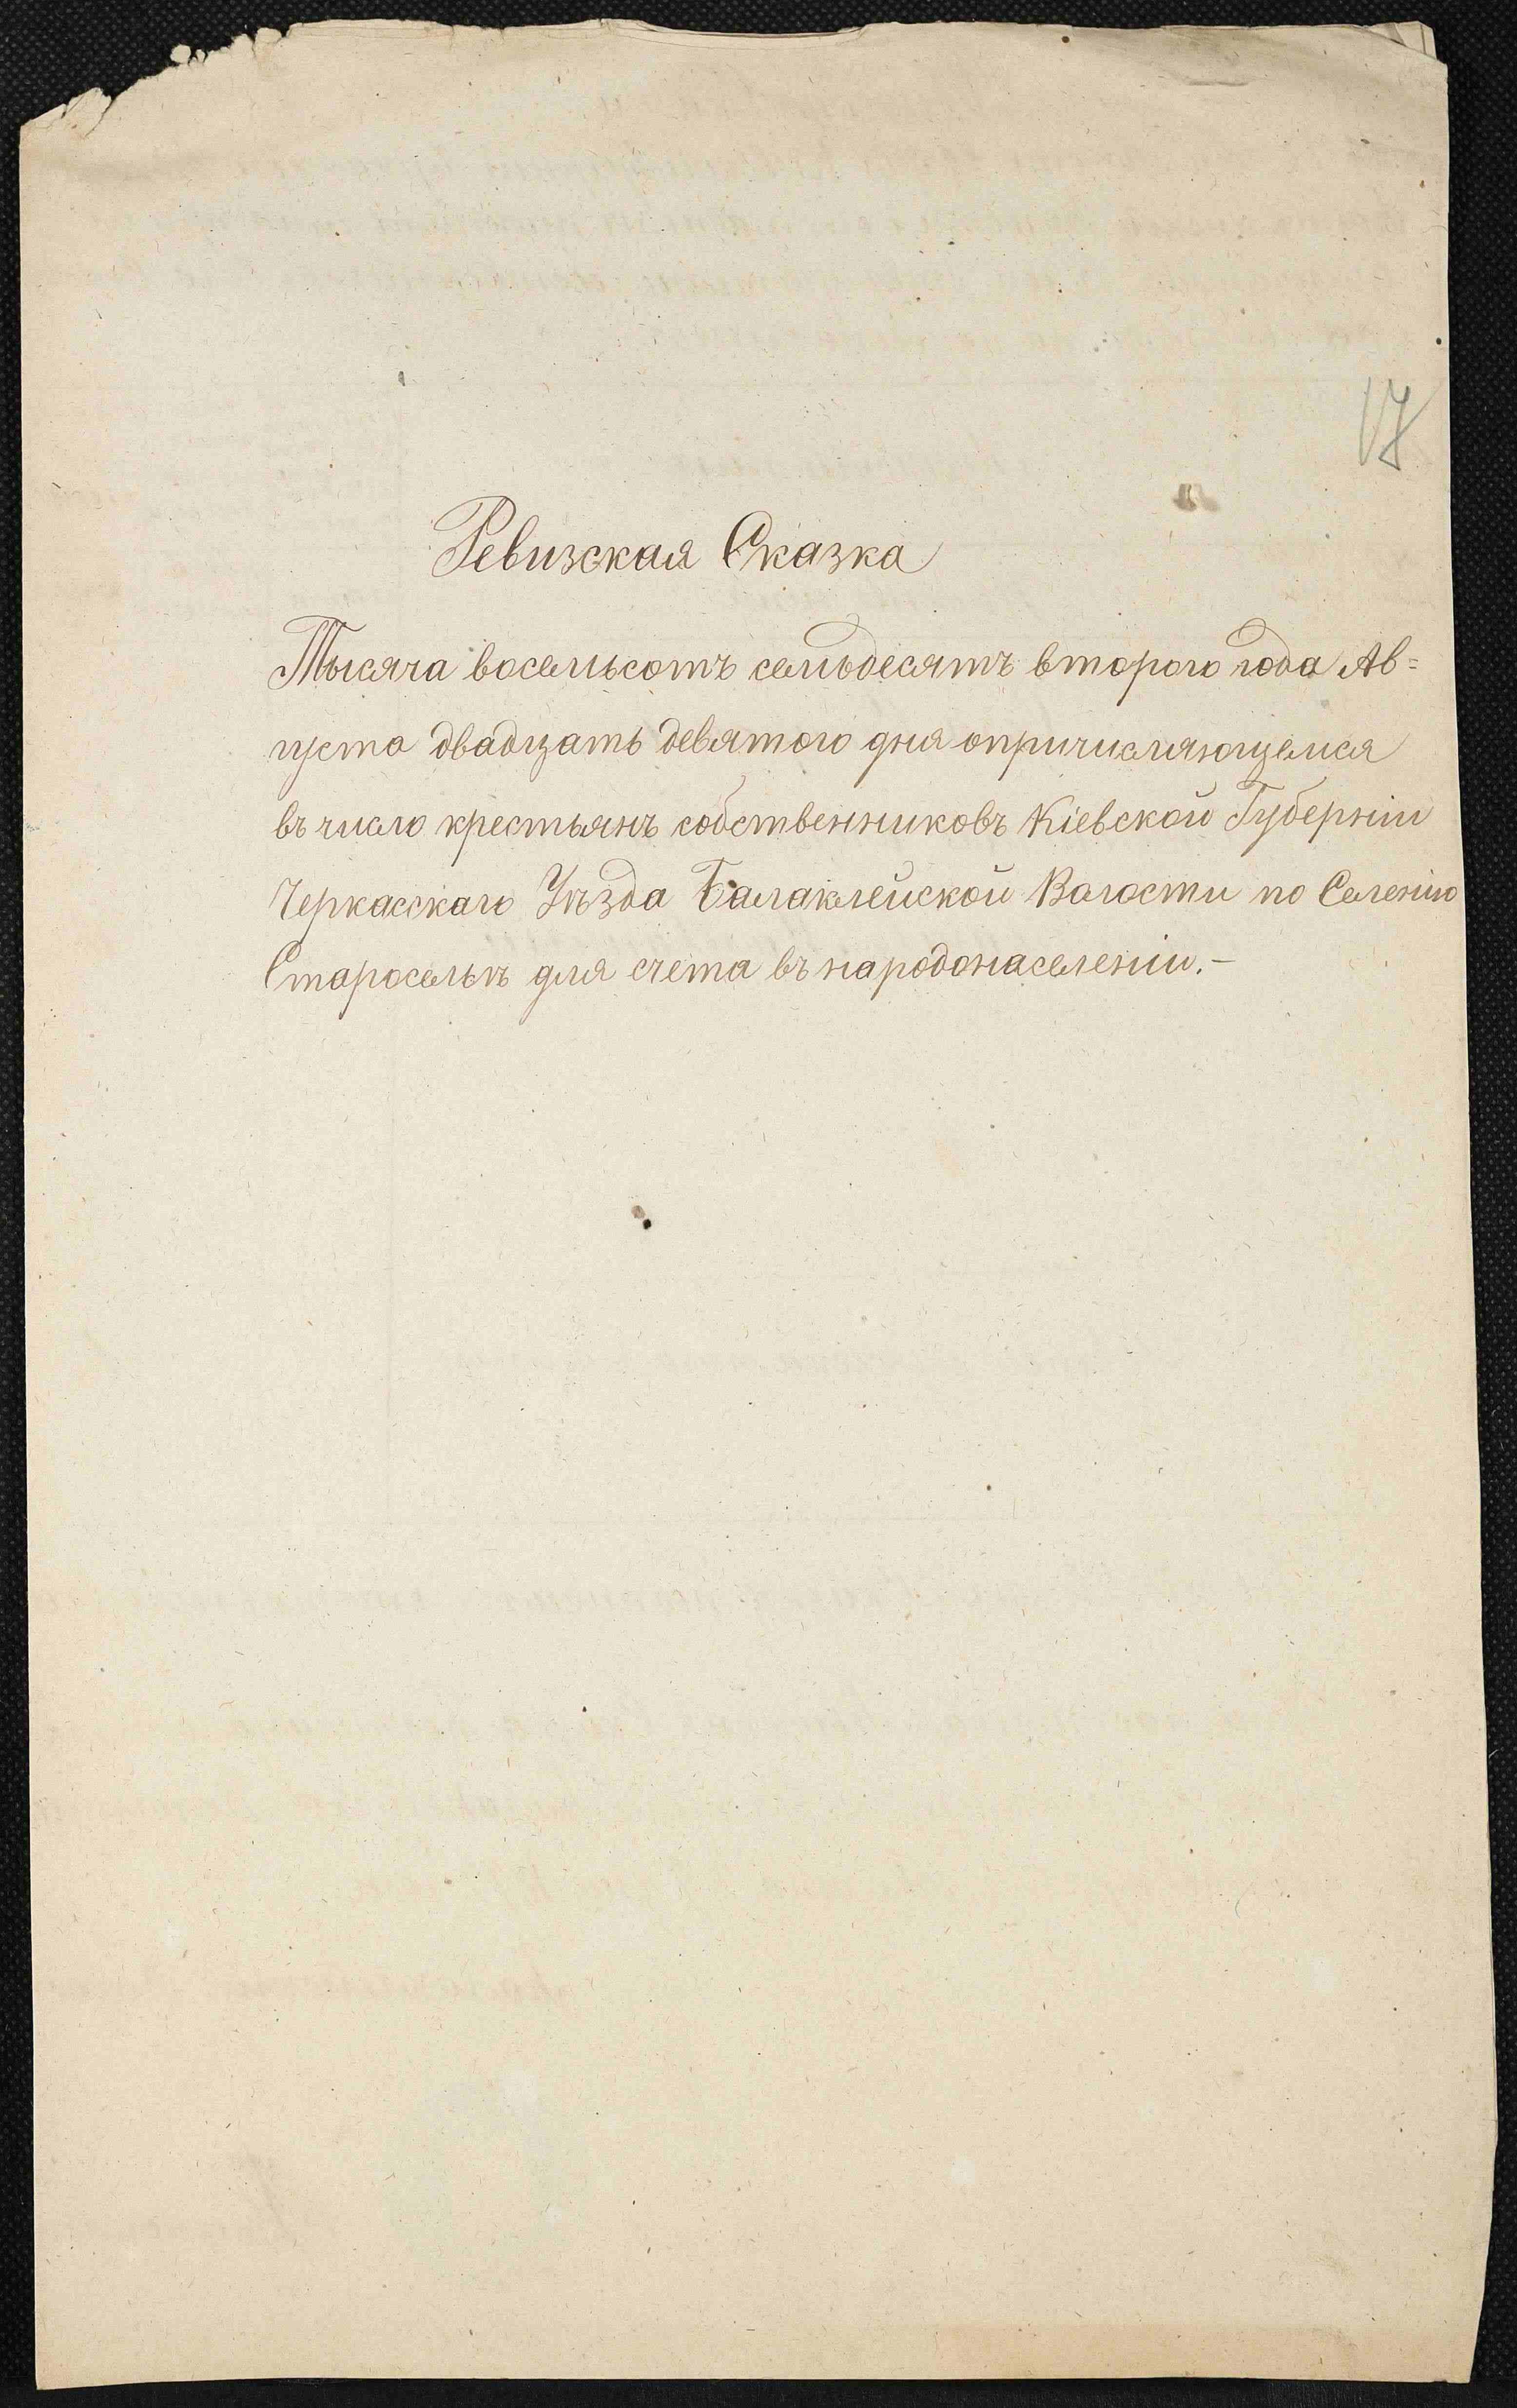 17
Ревизская Сказка
Тысяча восемьсотъ семьдесятъ второго года Ав=
густа двадцать девятого дня опричисляющемся
въ число крестьянъ собственниковъ Кіевской Губерніи
Черкасскаго Уѣзда Балаклейской Волости по Селенію
Старосельѣ для счета въ народонаселеніи.-